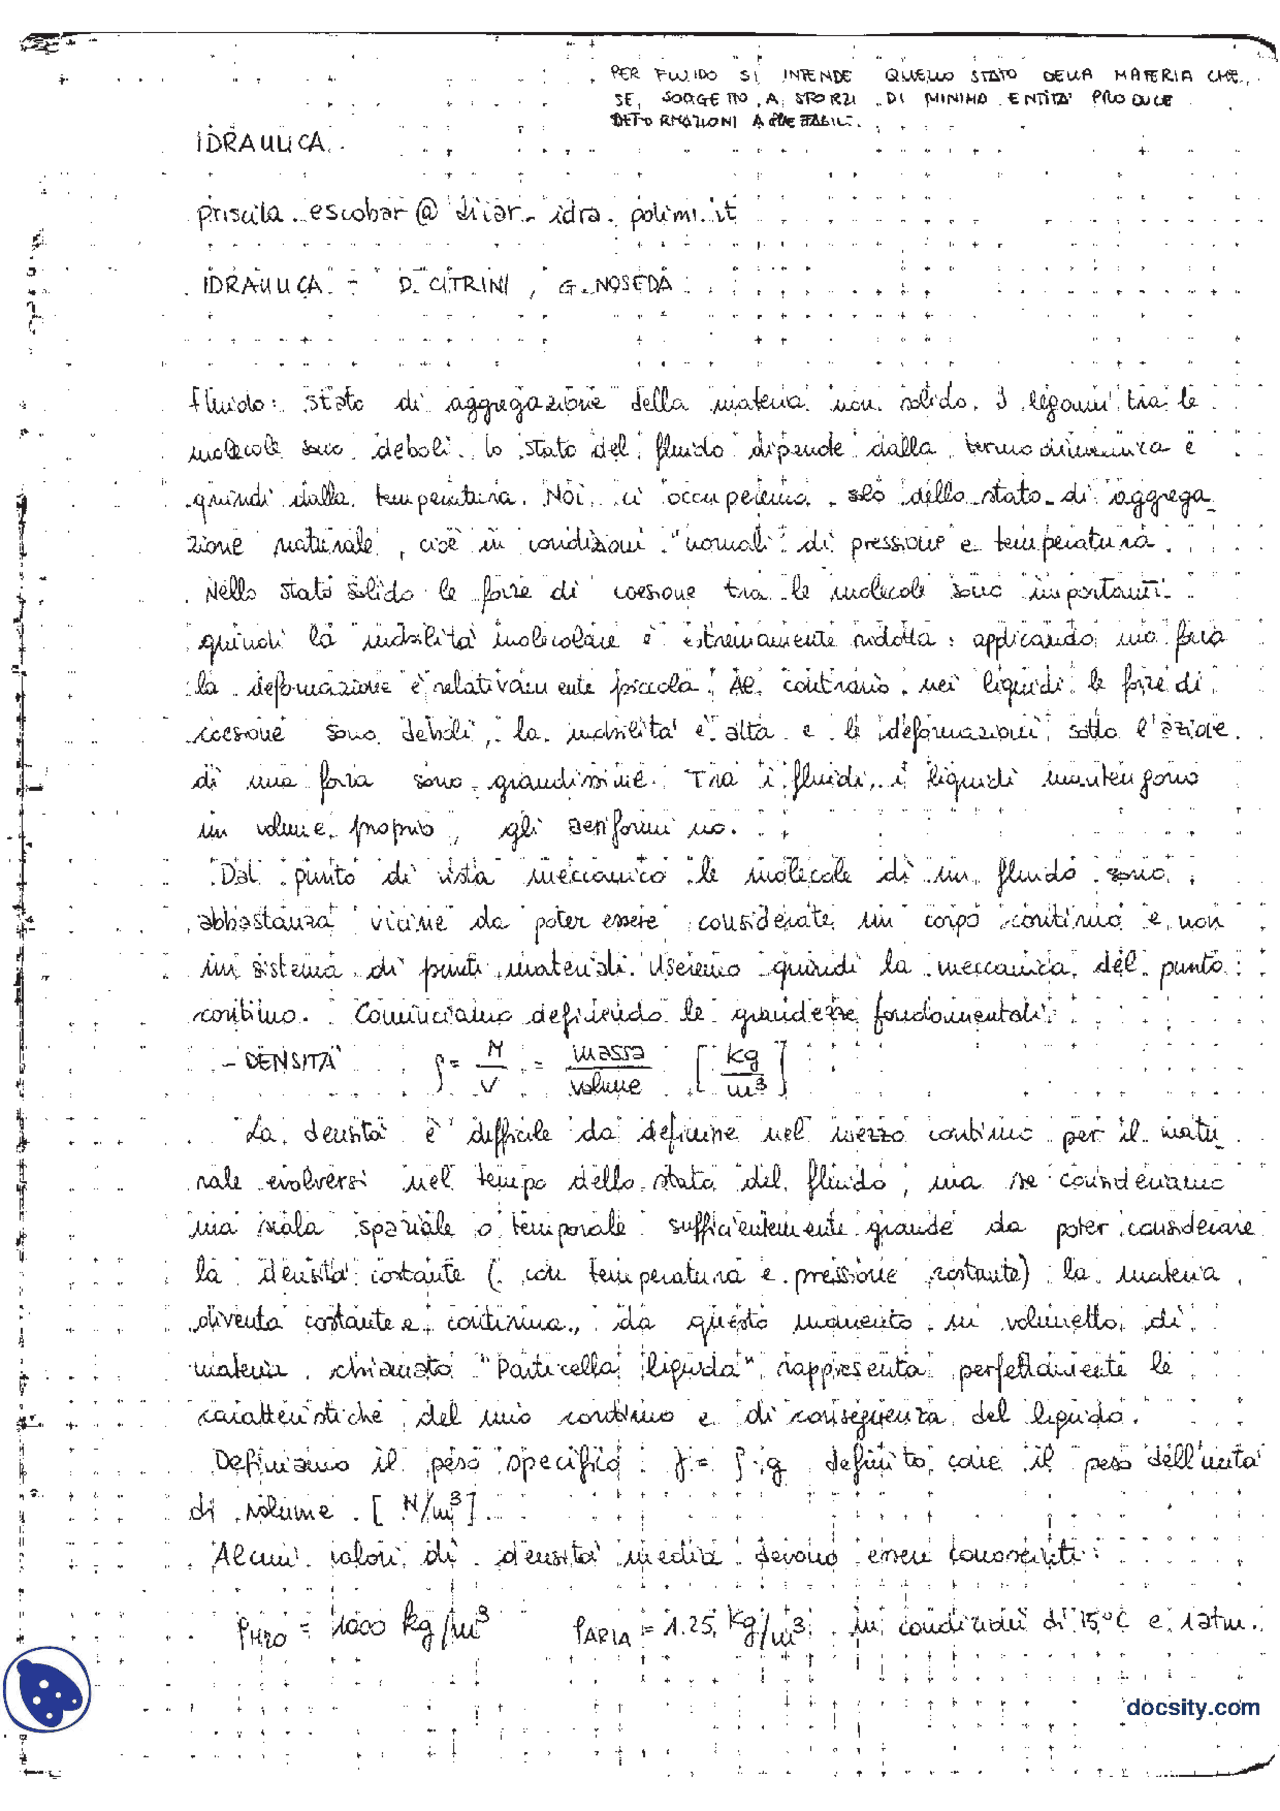 PER FLUIDO SI INTENDE QUELLO STATO DELLA MATERIA CHE,
SE SOGGETTO A SFORZI DI MINIMA ENTITA' PRODUCE
DEFORMAZIONI APPREZZABILI.
IDRAULICA.
priscila.escobar@diiar.idra.polimi.it
IDRAULICA - D. CITRINI, G. NOSEDA
fluido: stato di aggregazione della materia non solido. I legami tra le
molecole sono deboli. lo stato del fluido dipende dalla termodinamica e
quindi dalla temperatura. Noi ci occuperemo solo dello stato di aggrega_
zione naturale, cioè in condizioni "normali" di pressione e temperatura.
Nello stato solido le forze di coesione tra le molecole sono importanti
quindi la mobilità molecolare è estremamente ridotta: applicando una forza
la deformazione è relativamente piccola. Al contrario nei liquidi le forze di
coesione sono deboli, la mobilità è alta e le deformazioni sotto l'azione
di una forza sono grandissime. Tra i fluidi, i liquidi mantengono
un volume proprio, gli aeriformi no.
Dal punto di vista meccanico le molecole di un fluido sono
abbastanza vicine da poter essere considerate un corpo continuo e non
un sistema di punti materiali. Useremo quindi la meccanica del punto
continuo. Cominciamo definendo le grandezze fondamentali:
- DENSITÀ ρ = M/V = massa/volume [kg/m³]
La densità è difficile da definire nel mezzo continuo per il natu_
rale evolversi nel tempo dello stato del fluido, ma se consideriamo
una scala spaziale o temporale sufficientemente grande da poter considerare
la densità costante (con temperatura e pressione costante) la materia
diventa costante e continua, da questo momento un volumetto di
materia chiamato "Particella liquida" rappresenta perfettamente le
caratteristiche del mio continuo e di conseguenza del liquido.
Definiamo il peso specifico: γ = ρ·g definito come il peso dell'unità
di volume [N/m³].
Alcuni valori di densità media devono essere conosciuti:
ρH2O = 1000 kg/m³ ρARIA = 1.25 kg/m³ in condizioni di 15°C e 1atm.
docsity.com